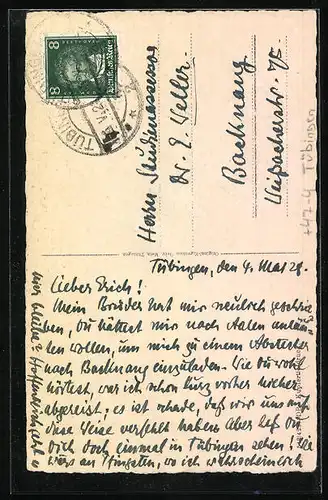 8 8
TÜBINGEN
Herrn Studienassessor
Dr. E. Weller.
Backnang
Weissacherstr. 75
+47-4 Tübingen
Tübingen, den 4. Mai 28.
Lieber Erich!
Mein Bruder hat mir neulich geschrie-
ben, Du hättest mir nach Aalen anläu-
ten wollen, um mich zu einem Abstecher
nach Backnang einzuladen. Wie Du wohl
hörtest, war ich schon kurz vorher hieher
abgereist; es ist schade, daß wir uns auf
diese Weise verfehlt haben. Aber laß
Dich doch einmal in Tübingen sehen!
wo ich wahrscheinlich
hier bleibe? Hoffentlich geht